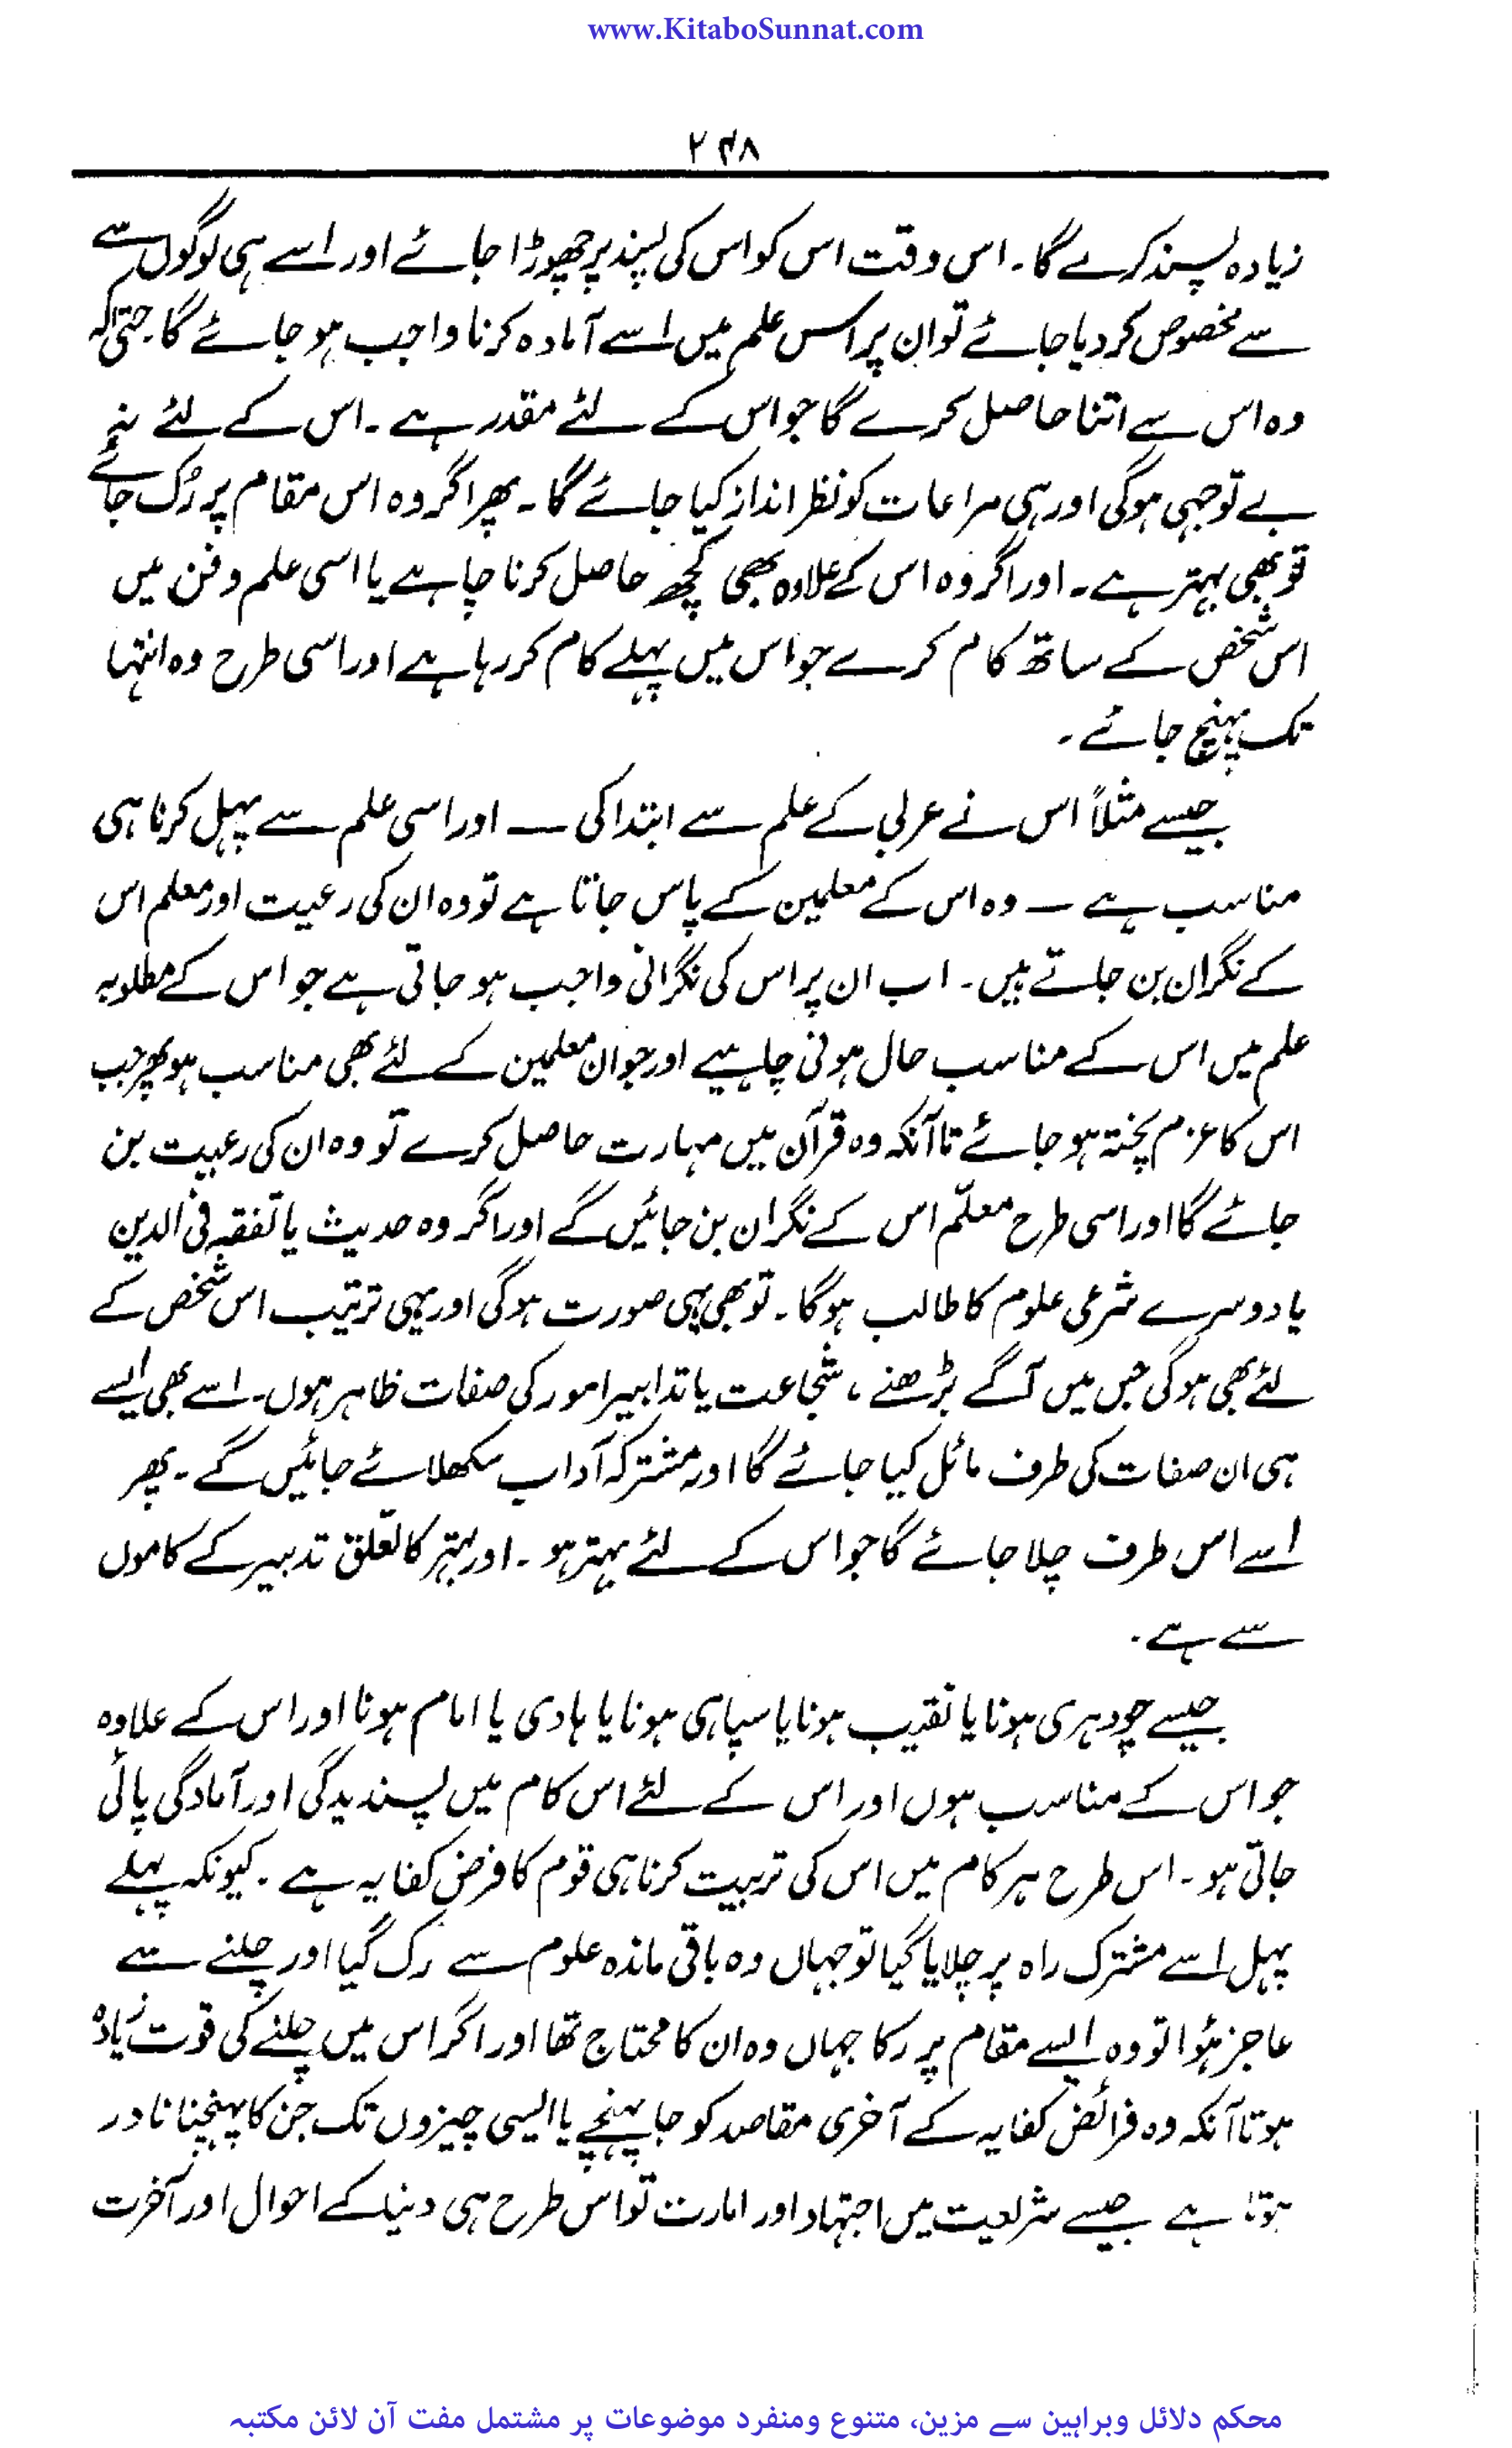 www.KitaboSunnat.com
۲۴۸
زیادہ پسند کرے گا۔ اس وقت اس کو اس کی پسند پر چھوڑا جائے اور اسے ہی لوگوں سے
سے مخصوص کر دیا جائے تو ان پر اس علم میں اسے آمادہ کرنا واجب ہو جائے گا۔ حتیٰ کہ
وہ اس سے اتنا حاصل کرے گا جو اس کے لئے مقدر ہے ۔ اس کے لئے نہ
بے توجہی ہوگی اور ہی مراعات کو نظر انداز کیا جائے گا ۔ پھر اگر وہ اس مقام پر رُک جائے
تو بھی بہتر ہے ۔ اور اگر وہ اس کے علاوہ بھی کچھ حاصل کرنا چاہے یا اسی علم و فن میں
اس شخص کے ساتھ کام کرے جو اس میں پہلے کام کر رہا ہے اور اسی طرح وہ انتہا
تک پہنچ جائے ۔
جیسے مثلاً اس نے عربی کے علم سے ابتدا کی ــ اور اسی علم سے پہل کرنا ہی
مناسب ہے ــ وہ اس کے معلمین کے پاس جاتا ہے تو وہ ان کی رعیت اور معلم اس
کے نگران بن جاتے ہیں ۔ اب ان پر اس کی نگرانی واجب ہو جاتی ہے جو اس کے مطلوبہ
علم میں اس کے مناسب حال ہونی چاہیے اور جو ان معلمین کے لئے بھی مناسب ہو پھر جب
اس کا عزم پختہ ہو جائے تا آنکہ وہ قرآن میں مہارت حاصل کرے تو وہ ان کی رعیت بن
جائے گا اور اسی طرح معلّم اس کے نگران بن جائیں گے اور اگر وہ حدیث یا تفقہ فی الدین
یا دوسرے شرعی علوم کا طالب ہوگا ۔ تو بھی یہی صورت ہوگی اور یہی ترتیب اس شخص کے
لئے بھی ہوگی جس میں آگے بڑھنے ، شجاعت یا تدابیر امور کی صفات ظاہر ہوں ۔ اسے بھی ایسے
ہی ان صفات کی طرف مائل کیا جائے گا اور مشترکہ آداب سکھلائے جائیں گے ۔ پھر
اسے اس طرف چلا جائے گا جو اس کے لئے بہتر ہو ۔ اور بہتر کا تعلق تدبیر کے کاموں
سے ہے ۔
جیسے چودہری ہونا یا نقیب ہونا یا سپاہی ہونا یا ہادی یا امام ہونا اور اس کے علاوہ
جو اس کے مناسب ہوں اور اس کے لئے اس کام میں پسندیدگی اور آمادگی پائی
جاتی ہو ۔ اس طرح ہر کام میں اس کی تربیت کرنا ہی قوم کا فرض کفایہ ہے ۔ کیونکہ پہلے
پہل اسے مشترک راہ پر چلایا گیا تو جہاں وہ باقی ماندہ علوم سے رک گیا اور چلنے سے
عاجز ہوُا تو وہ ایسے مقام پر رکا جہاں وہ ان کا محتاج تھا اور اگر اس میں چلنے کی قوت زیادہ
ہو تا آنکہ وہ فرائض کفایہ کے آخری مقاصد کو جا پہنچے یا ایسی چیزوں تک جن کا پہنچنا نادر
ہوتا ہے جیسے شریعت میں اجتہاد اور امارت تو اس طرح ہی دنیا کے احوال اور آخرت
محکم دلائل وبراہین سے مزین، متنوع ومنفرد موضوعات پر مشتمل مفت آن لائن مکتبہ